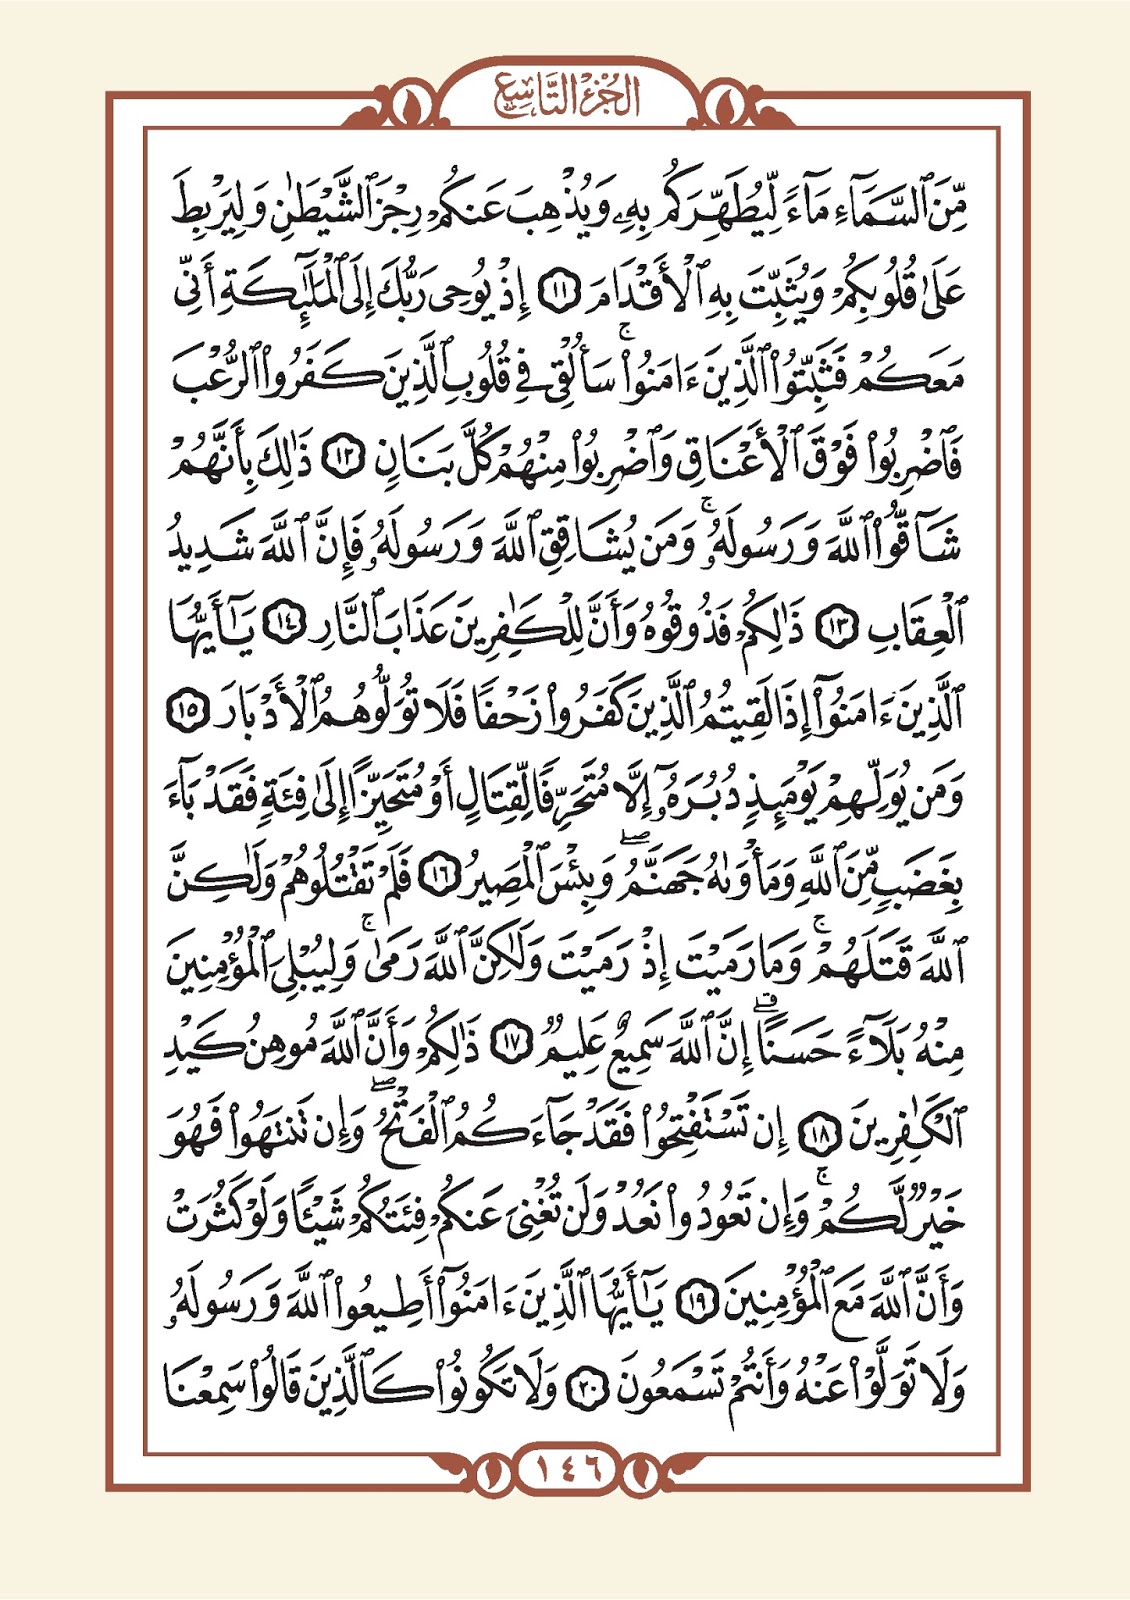 الجزء التاسع
مِّنَ ٱلسَّمَآءِ مَآءً لِّيُطَهِّرَكُم بِهِۦ وَيُذْهِبَ عَنكُمْ رِجْزَ ٱلشَّيْطَٰنِ وَلِيَرْبِطَ
عَلَىٰ قُلُوبِكُمْ وَيُثَبِّتَ بِهِ ٱلْأَقْدَامَ ١١ إِذْ يُوحِى رَبُّكَ إِلَى ٱلْمَلَٰٓئِكَةِ أَنِّى
مَعَكُمْ فَثَبِّتُوا۟ ٱلَّذِينَ ءَامَنُوا۟ ۚ سَأُلْقِى فِى قُلُوبِ ٱلَّذِينَ كَفَرُوا۟ ٱلرُّعْبَ
فَٱضْرِبُوا۟ فَوْقَ ٱلْأَعْنَاقِ وَٱضْرِبُوا۟ مِنْهُمْ كُلَّ بَنَانٍ ١٢ ذَٰلِكَ بِأَنَّهُمْ
شَآقُّوا۟ ٱللَّهَ وَرَسُولَهُۥ ۚ وَمَن يُشَاقِقِ ٱللَّهَ وَرَسُولَهُۥ فَإِنَّ ٱللَّهَ شَدِيدُ
ٱلْعِقَابِ ١٣ ذَٰلِكُمْ فَذُوقُوهُ وَأَنَّ لِلْكَٰفِرِينَ عَذَابَ ٱلنَّارِ ١٤ يَٰٓأَيُّهَا
ٱلَّذِينَ ءَامَنُوٓا۟ إِذَا لَقِيتُمُ ٱلَّذِينَ كَفَرُوا۟ زَحْفًا فَلَا تُوَلُّوهُمُ ٱلْأَدْبَارَ ١٥
وَمَن يُوَلِّهِمْ يَوْمَئِذٍ دُبُرَهُۥٓ إِلَّا مُتَحَرِّفًا لِّقِتَالٍ أَوْ مُتَحَيِّزًا إِلَىٰ فِئَةٍ فَقَدْ بَآءَ
بِغَضَبٍ مِّنَ ٱللَّهِ وَمَأْوَىٰهُ جَهَنَّمُ ۖ وَبِئْسَ ٱلْمَصِيرُ ١٦ فَلَمْ تَقْتُلُوهُمْ وَلَٰكِنَّ
ٱللَّهَ قَتَلَهُمْ ۚ وَمَا رَمَيْتَ إِذْ رَمَيْتَ وَلَٰكِنَّ ٱللَّهَ رَمَىٰ ۚ وَلِيُبْلِىَ ٱلْمُؤْمِنِينَ
مِنْهُ بَلَآءً حَسَنًا ۚ إِنَّ ٱللَّهَ سَمِيعٌ عَلِيمٌ ١٧ ذَٰلِكُمْ وَأَنَّ ٱللَّهَ مُوهِنُ كَيْدِ
ٱلْكَٰفِرِينَ ١٨ إِن تَسْتَفْتِحُوا۟ فَقَدْ جَآءَكُمُ ٱلْفَتْحُ ۖ وَإِن تَنتَهُوا۟ فَهُوَ
خَيْرٌ لَّكُمْ ۚ وَإِن تَعُودُوا۟ نَعُدْ وَلَن تُغْنِىَ عَنكُمْ فِئَتُكُمْ شَيْـًٔا وَلَوْ كَثُرَتْ
وَأَنَّ ٱللَّهَ مَعَ ٱلْمُؤْمِنِينَ ١٩ يَٰٓأَيُّهَا ٱلَّذِينَ ءَامَنُوٓا۟ أَطِيعُوا۟ ٱللَّهَ وَرَسُولَهُۥ
وَلَا تَوَلَّوْا۟ عَنْهُ وَأَنتُمْ تَسْمَعُونَ ٢٠ وَلَا تَكُونُوا۟ كَٱلَّذِينَ قَالُوا۟ سَمِعْنَا
١٤٦